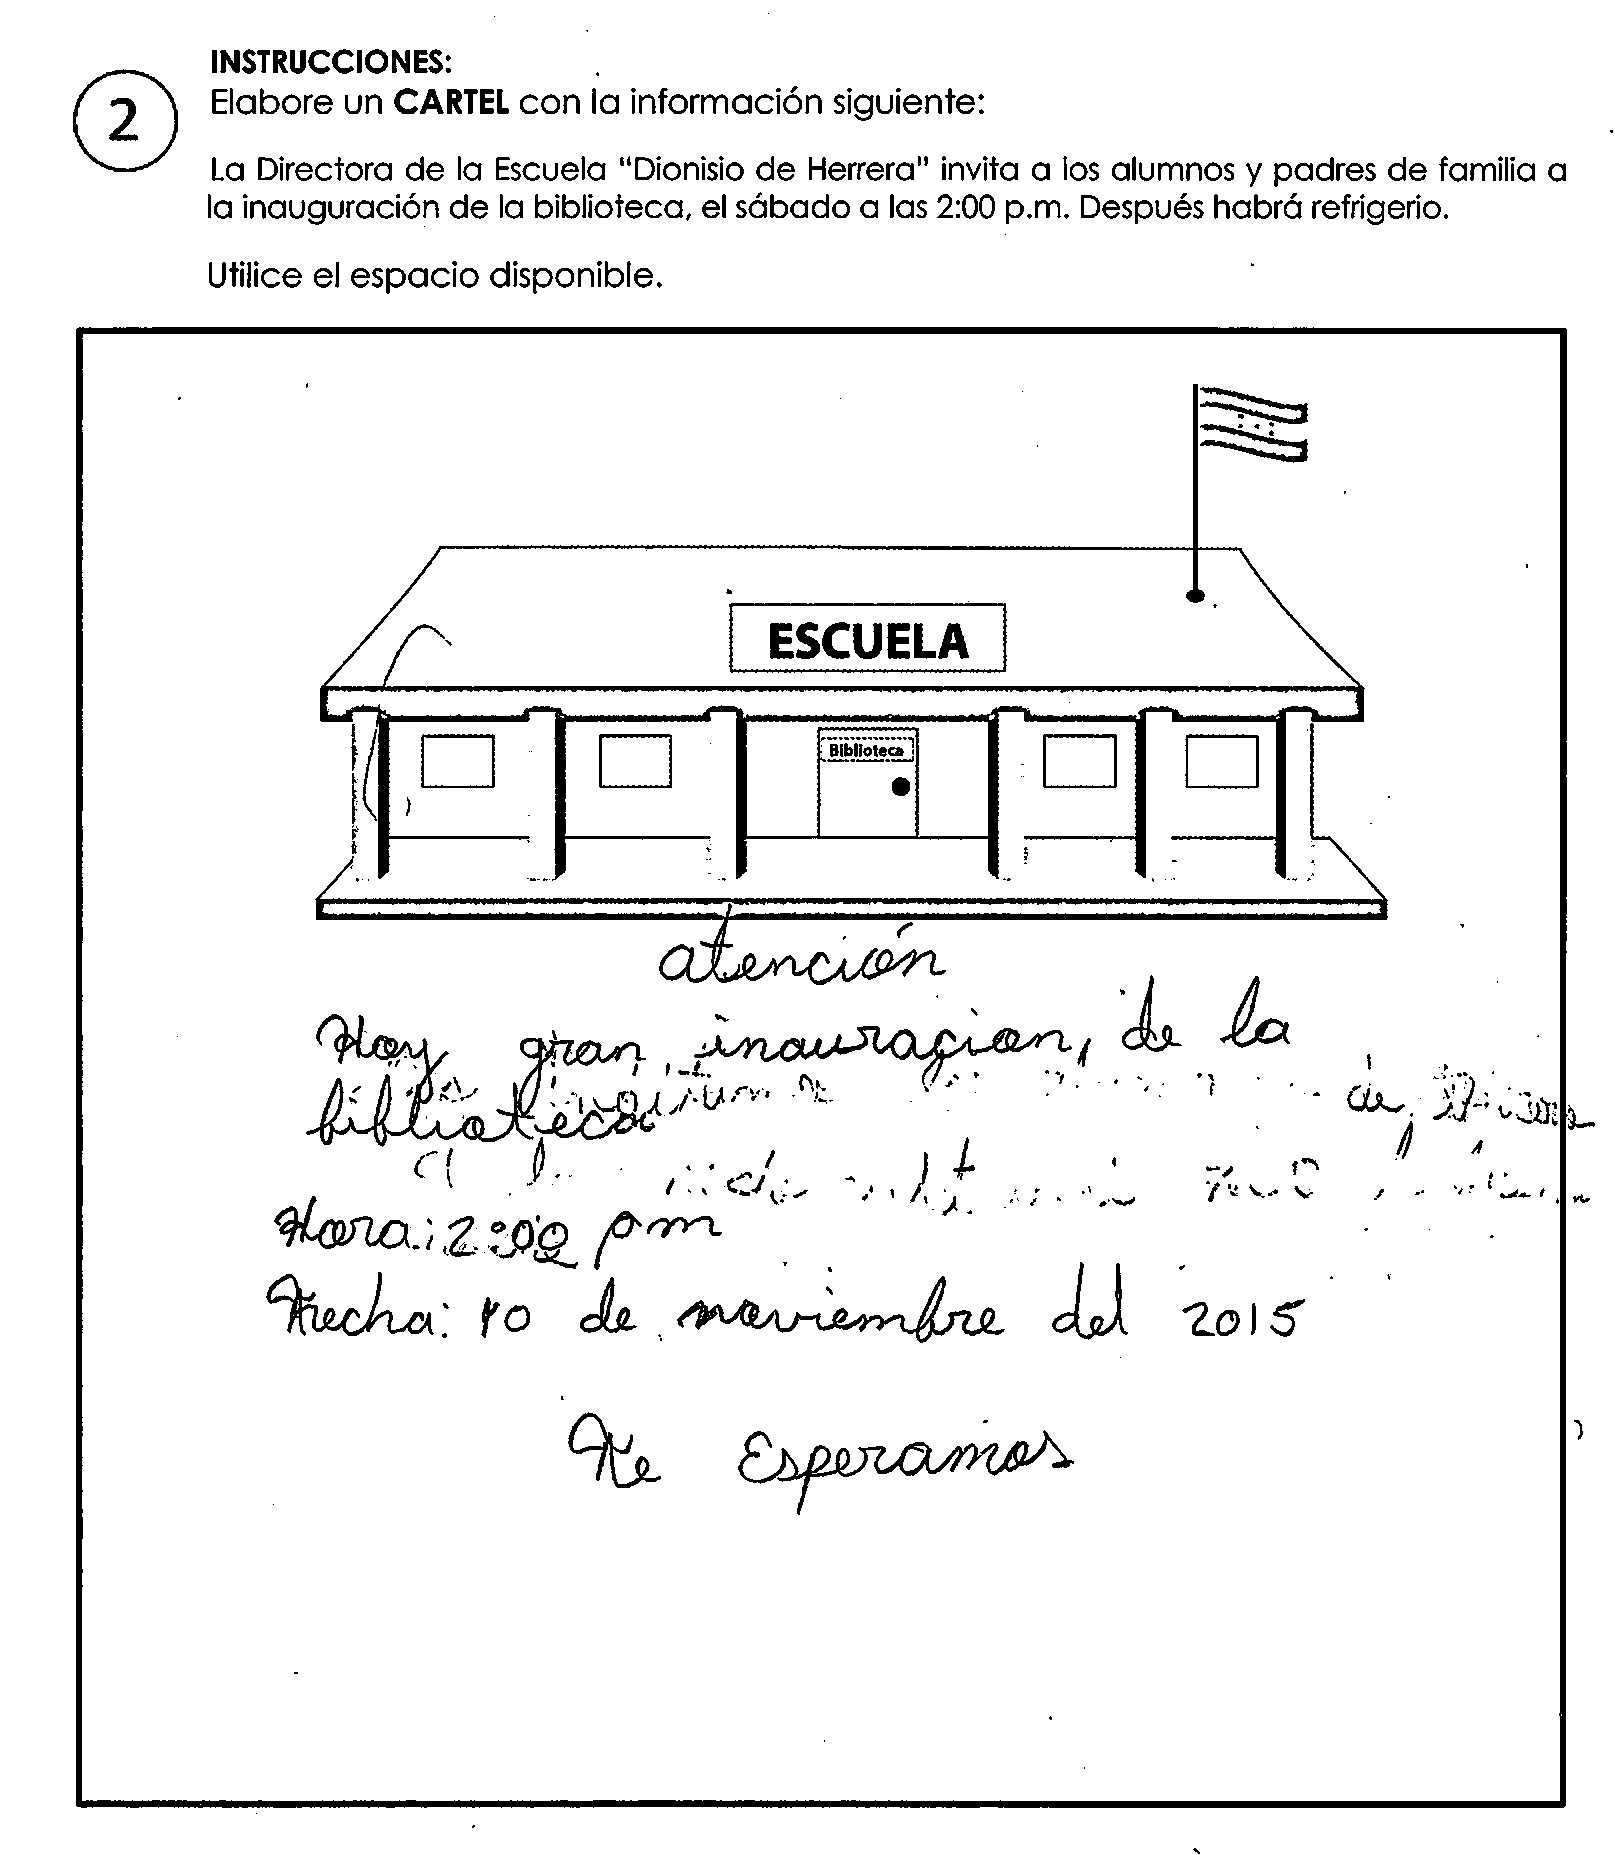 INSTRUCCIONES:
2
Elabore un CARTEL con la información siguiente:
La Directora de la Escuela "Dionisio de Herrera" invita a los alumnos y padres de familia a
la inauguración de la biblioteca, el sábado a las 2:00 p.m. Después habrá refrigerio.
Utilice el espacio disponible.
ESCUELA
Biblioteca
atención
Hoy gran inauracion, de la
biblioteca
de
Hora: 2:00 pm
Fecha: 10 de noviembre del 2015
Te Esperamos